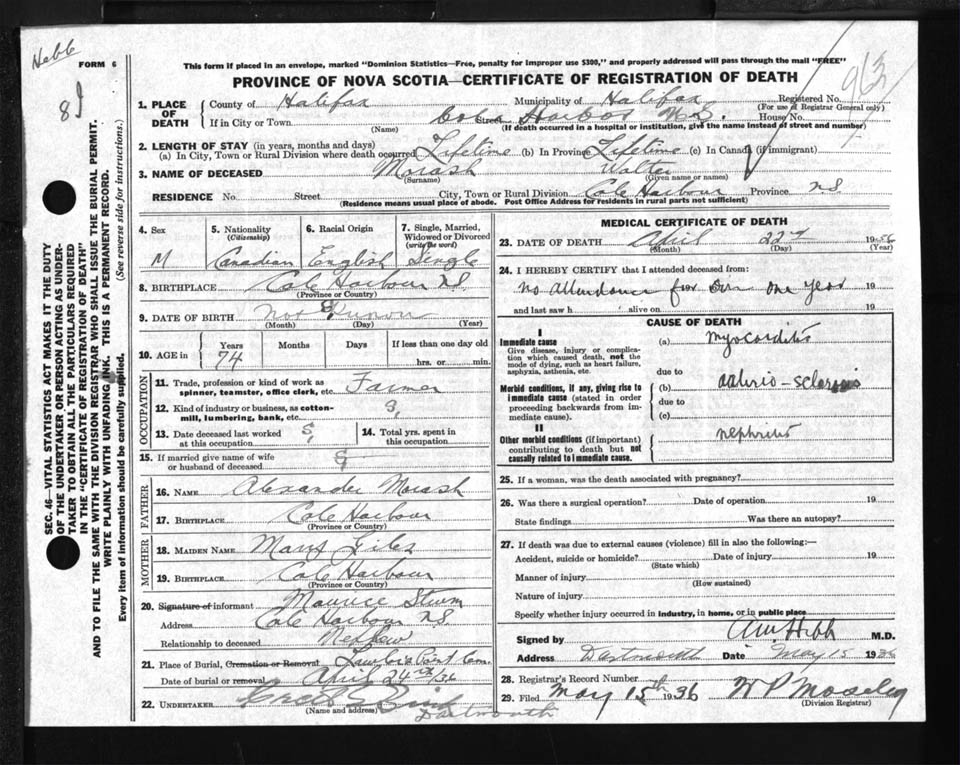 Hebb
FORM 6
This form if placed in an envelope, marked "Dominion Statistics—Free, penalty for improper use $300," and properly addressed will pass through the mail "FREE"
PROVINCE OF NOVA SCOTIA—CERTIFICATE OF REGISTRATION OF DEATH
963
SEC. 46—VITAL STATISTICS ACT MAKES IT THE DUTY
OF THE UNDERTAKER OR PERSON ACTING AS UNDER-
TAKER TO OBTAIN ALL THE PARTICULARS REQUIRED
IN THE "CERTIFICATE OF REGISTRATION OF DEATH"
AND TO FILE THE SAME WITH THE DIVISION REGISTRAR WHO SHALL ISSUE THE BURIAL PERMIT.
WRITE PLAINLY WITH UNFADING INK. THIS IS A PERMANENT RECORD.
Every item of information should be carefully supplied. (See reverse side for instructions.)
1. PLACE OF DEATH County of Halifax Municipality of Halifax Registered No.
(For use of Registrar General only)
If in City or Town Street Cole Harbor N.S. House No.
(Name) (If death occurred in a hospital or institution, give the name instead of street and number)
2. LENGTH OF STAY (in years, months and days)
(a) In City, Town or Rural Division where death occurred Lifetime (b) In Province Lifetime (c) In Canada (if immigrant)
3. NAME OF DECEASED Morash Walter
(Surname) (Given name or names)
RESIDENCE No. Street City, Town or Rural Division Cole Harbour Province NS
(Residence means usual place of abode. Post Office Address for residents in rural parts not sufficient)
4. Sex M
5. Nationality (Citizenship) Canadian
6. Racial Origin English
7. Single, Married, Widowed or Divorced (write the word) Single
8. BIRTHPLACE Cole Harbour NS.
(Province or Country)
9. DATE OF BIRTH Not Known
(Month) (Day) (Year)
10. AGE in Years 74 Months Days If less than one day old
hrs. or min.
OCCUPATION
11. Trade, profession or kind of work as spinner, teamster, office clerk, etc. Farmer
12. Kind of industry or business, as cotton-mill, lumbering, bank, etc.
13. Date deceased last worked at this occupation
14. Total yrs. spent in this occupation
15. If married give name of wife or husband of deceased
FATHER
16. NAME Alexander Morash
17. BIRTHPLACE Cole Harbour
(Province or Country)
MOTHER
18. MAIDEN NAME Mary Giles
19. BIRTHPLACE Cole Harbour
(Province or Country)
20. Signature of informant Maurice
Address Cole Harbour NS.
Relationship to deceased Nephew
21. Place of Burial, Cremation or Removal Lawlor's Point Cem.
Date of burial or removal April 24th/36
22. UNDERTAKER
(Name and address) Dartmouth
MEDICAL CERTIFICATE OF DEATH
23. DATE OF DEATH April 22 1936
(Month) (Day) (Year)
24. I HEREBY CERTIFY that I attended deceased from:
no attendance for one year 19
and last saw h alive on 19
CAUSE OF DEATH
I
Immediate cause
Give disease, injury or complication which caused death, not the mode of dying, such as heart failure, asphyxia, asthenia, etc.
(a) myocarditis
due to
Morbid conditions, if any, giving rise to immediate cause (stated in order proceeding backwards from immediate cause).
(b) arterio-sclerosis
due to
(c)
II
Other morbid conditions (if important) contributing to death but not causally related to immediate cause.
nephritis
25. If a woman, was the death associated with pregnancy?
26. Was there a surgical operation? Date of operation 19
State findings Was there an autopsy?
27. If death was due to external causes (violence) fill in also the following:—
Accident, suicide or homicide? Date of injury 19
(State which)
Manner of injury
(How sustained)
Nature of injury
Specify whether injury occurred in industry, in home, or in public place
Signed by Hebb M.D.
Address Dartmouth Date May 15 1936
28. Registrar's Record Number
29. Filed May 15th 1936 W P Moseley
(Division Registrar)